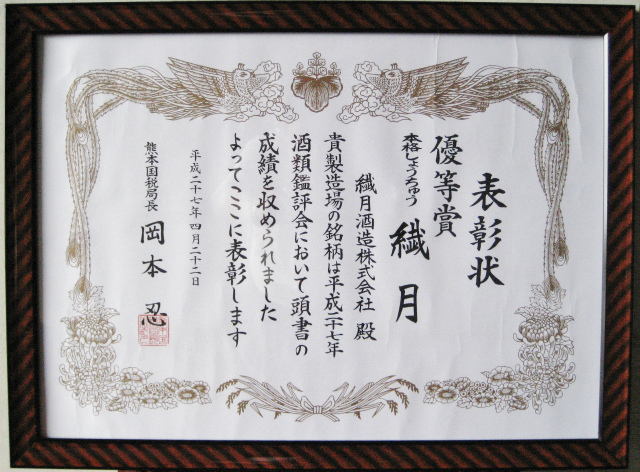 表彰状
優等賞
本格しょうちゅう 繊月
繊月酒造株式会社 殿
貴製造場の銘柄は平成二十七年
酒類鑑評会において頭書の
成績を収められました
よってここに表彰します
平成二十七年四月二十二日
熊本国税局長 岡本 忍